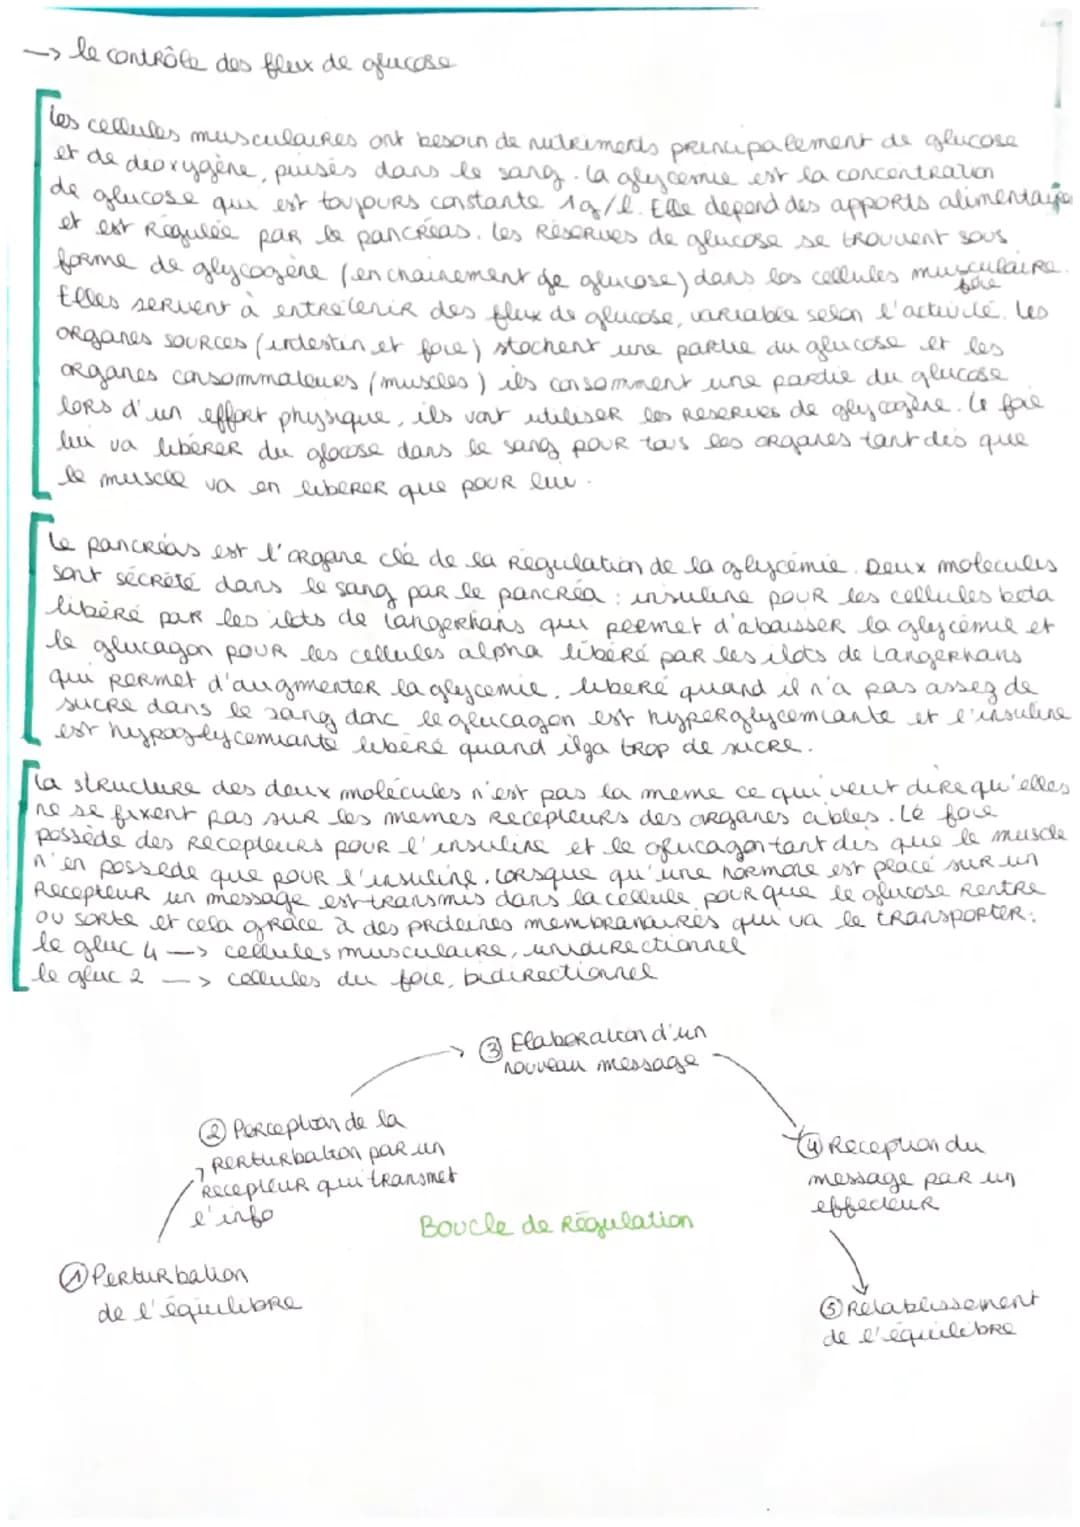 -> le contrôle des flux de glucose
les cellules musculaires ont besoin de nutriments principalement de glucose
et de dioxygène, puisés dans le sang. la glycémie est la concentration
de glucose qui est toujours constante 1g/l. Elle dépend des apports alimentaire
et est Régulée par le pancréas. les Réserves de glucose se trouvent sous
forme de glycogène (enchainement de glucose) dans les cellules musculaire.
foie
Elles servent à entretenir des flux de glucose, variable selon l'activité. les
organes sources (intestin et foie) stockent une partie du glucose et les
organes consommateurs (muscles) ils consomment une partie du glucose
lors d'un effort physique, ils vont utiliser les réserves de glycogène. le foie
lui va libérer du glocose dans le sang pour tous les organes tant dis que
le muscle va en liberer que pour lui.
le pancréas est l'organe clé de la Régulation de la glycémie. Deux molécules
sont sécrété dans le sang par le pancréa : insuline pour les cellules beta
libéré par les ilots de langerhans qui permet d'abaisser la glycémie et
le glucagon pour les cellules alpha libéré par les ilots de Langerhans
qui permet d'augmenter la glycemie, liberé quand il n'a pas assez de
sucre dans le sang donc le glucagon est hyperglycemiante et l'insuline
est hypoglycemiante libéré quand ilya trop de sucre.
la structure des deux molécules n'est pas la meme ce qui veut dire qu'elles
ne se fixent pas sur les memes Recepteurs des organes cibles. Le foie
possède des Recepteurs pour l'insuline et le glucagon tant dis que le muscle
n'en possede que pour l'insuline. lorsque qu'une hormone est placé sur un
Recepteur un message est transmis dans la cellule pour que le glucose Rentre
ou sorte et cela grâce à des protéines membranaires qui va le transporter:
le gluc 4 -> cellules musculaire, unidirectionnel
le gluc 2 -> cellules du foie, bidirectionnel
③ Elaboration d'un
nouveau message
② Perception de la
perturbation par un
Recepteur qui transmet
l'info
④ Reception du
message par un
effecteur
Boucle de Régulation
① Perturbation
de l'équilibre
⑤ Retablissement
de l'équilibre